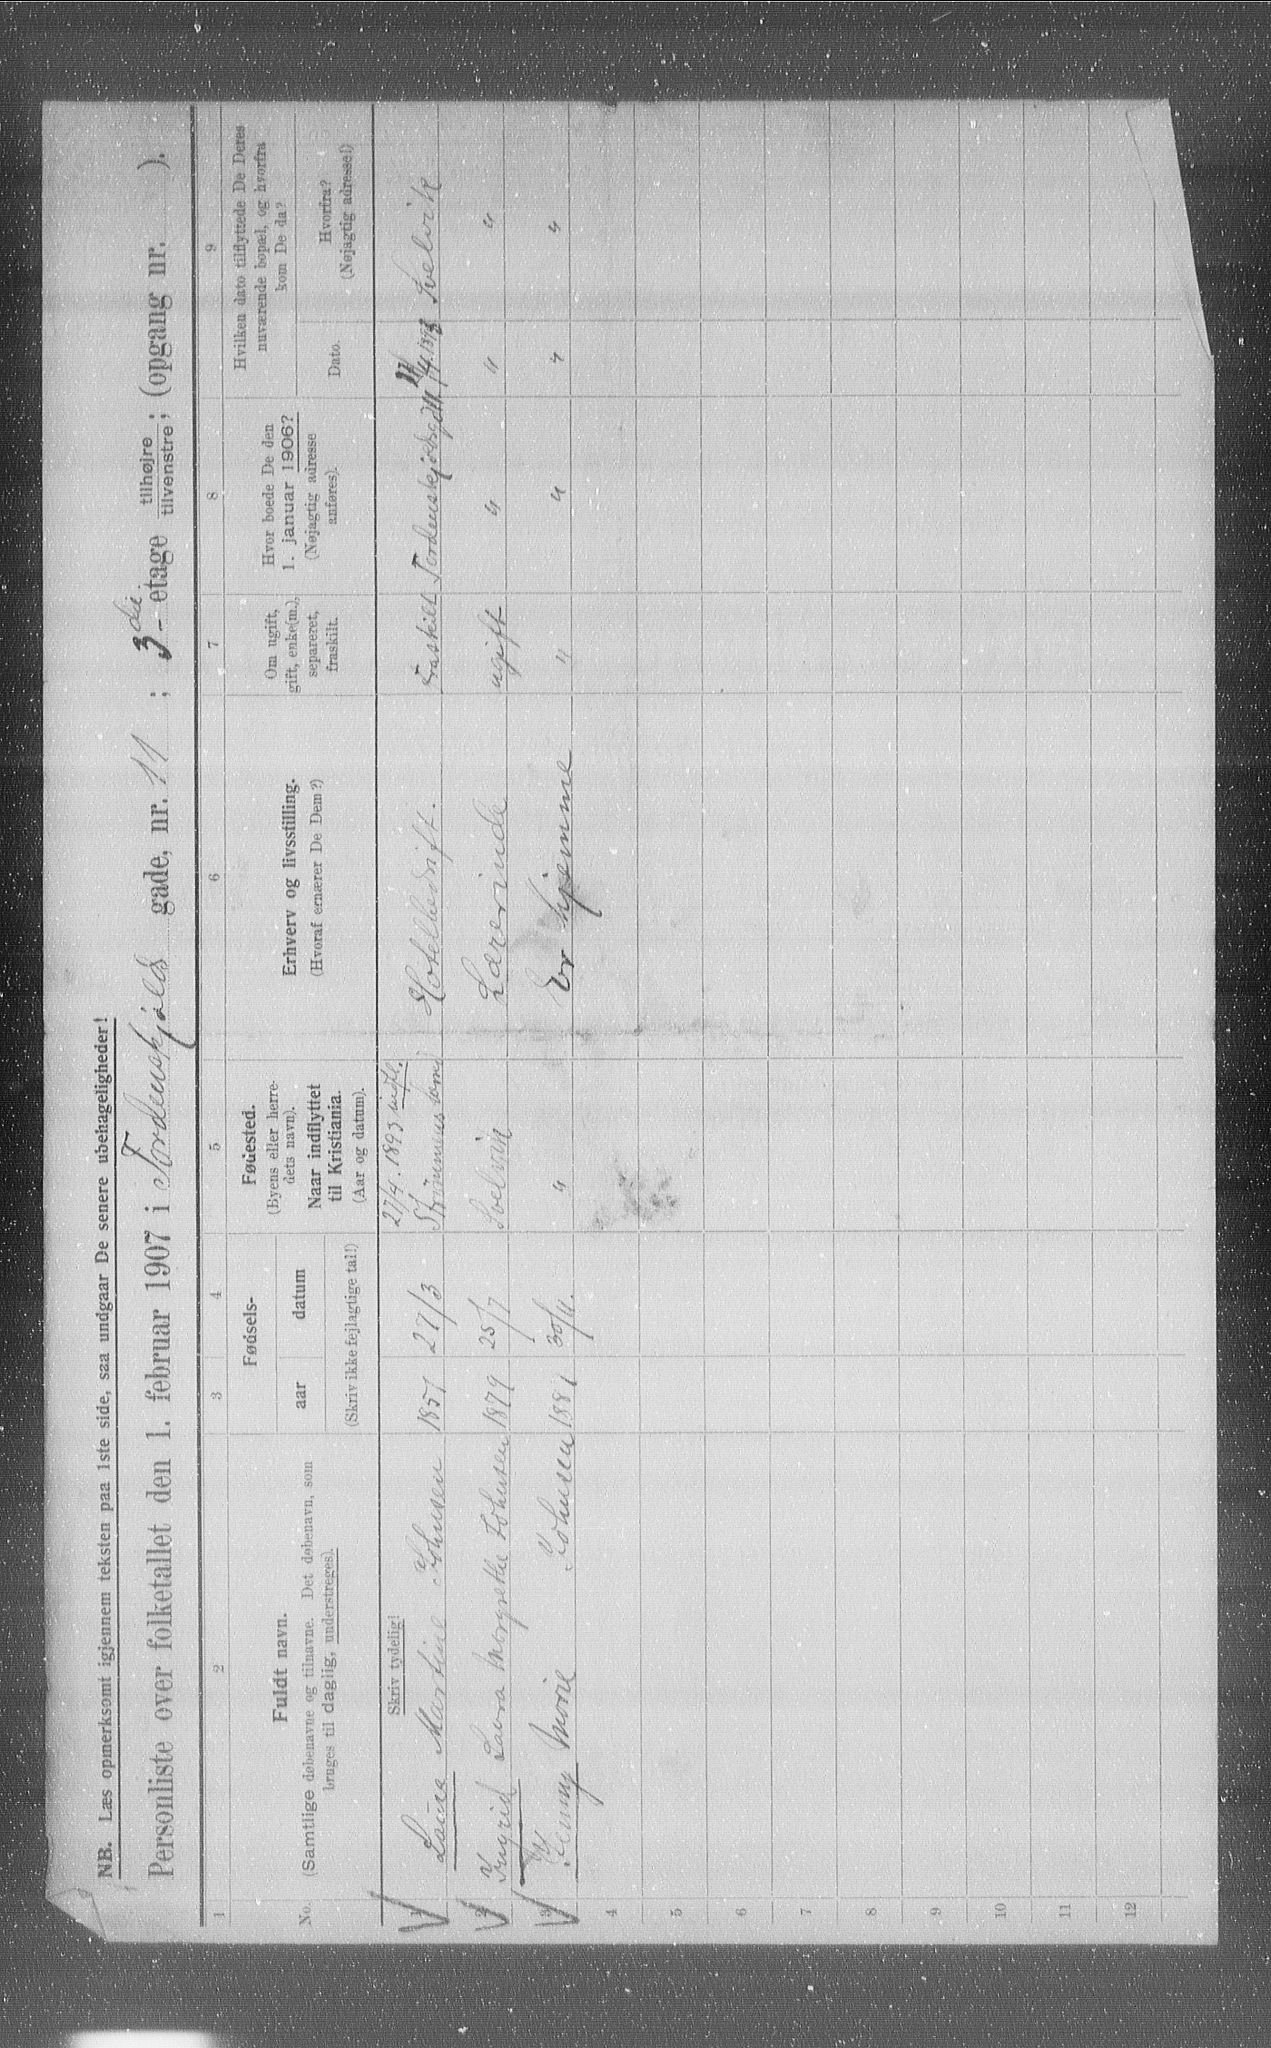 NB. Læs opmerksomt igjennem teksten paa 1ste side, saa undgaar De senere ubehageligheder!
Personliste over folketallet den 1. februar 1907 i Tordenskjolds gade, nr. 11 ; 3die - etage tilhøjre tilvenstre; (opgang nr. ).
1 2 3 4 5 6 7 8 9
No.
Fuldt navn.
(Samtlige døbenavne og tilnavne. Det døbenavn, som
bruges til daglig, understreges).
Fødsels-
aar datum
(Skriv ikke fejlagtige tal!)
Fødested.
(Byens eller herre-
dets navn).
Naar indflyttet
til Kristiania.
(Aar og datum).
Erhverv og livsstilling.
(Hvoraf ernærer De Dem?)
Om ugift,
gift, enke(m.),
separeret,
fraskilt.
Hvor boede De den
1. januar 1906?
(Nøjagtig adresse
anføres).
Hvilken dato tilflyttede De Deres
nuværende bopæl, og hvorfra
kom De da?
Dato.
Hvorfra?
(Nøjagtig adresse!)
Skriv tydelig!
27/4. 1893 indfl.
1 Martine Johnsen 1857 27/3 Hotelbedrift. Fraskilt Svelvik
2 Ingrid Laura Margrethe Johnsen 1879 25/7 Svelvik Lærerinde ugift " " "
3 Johnsen 1881 30/11. " Er hjemme " " " "
4
5
6
7
8
9
10
11
12